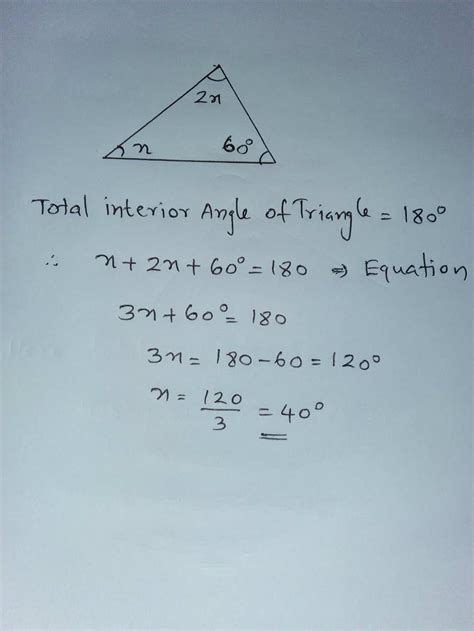 2n
n 60°
Total interior Angle of Triangle = 180°
∴ n + 2n + 60° = 180 ⇒ Equation
3n + 60° = 180
3n = 180 - 60 = 120°
n = 120/3 = 40°